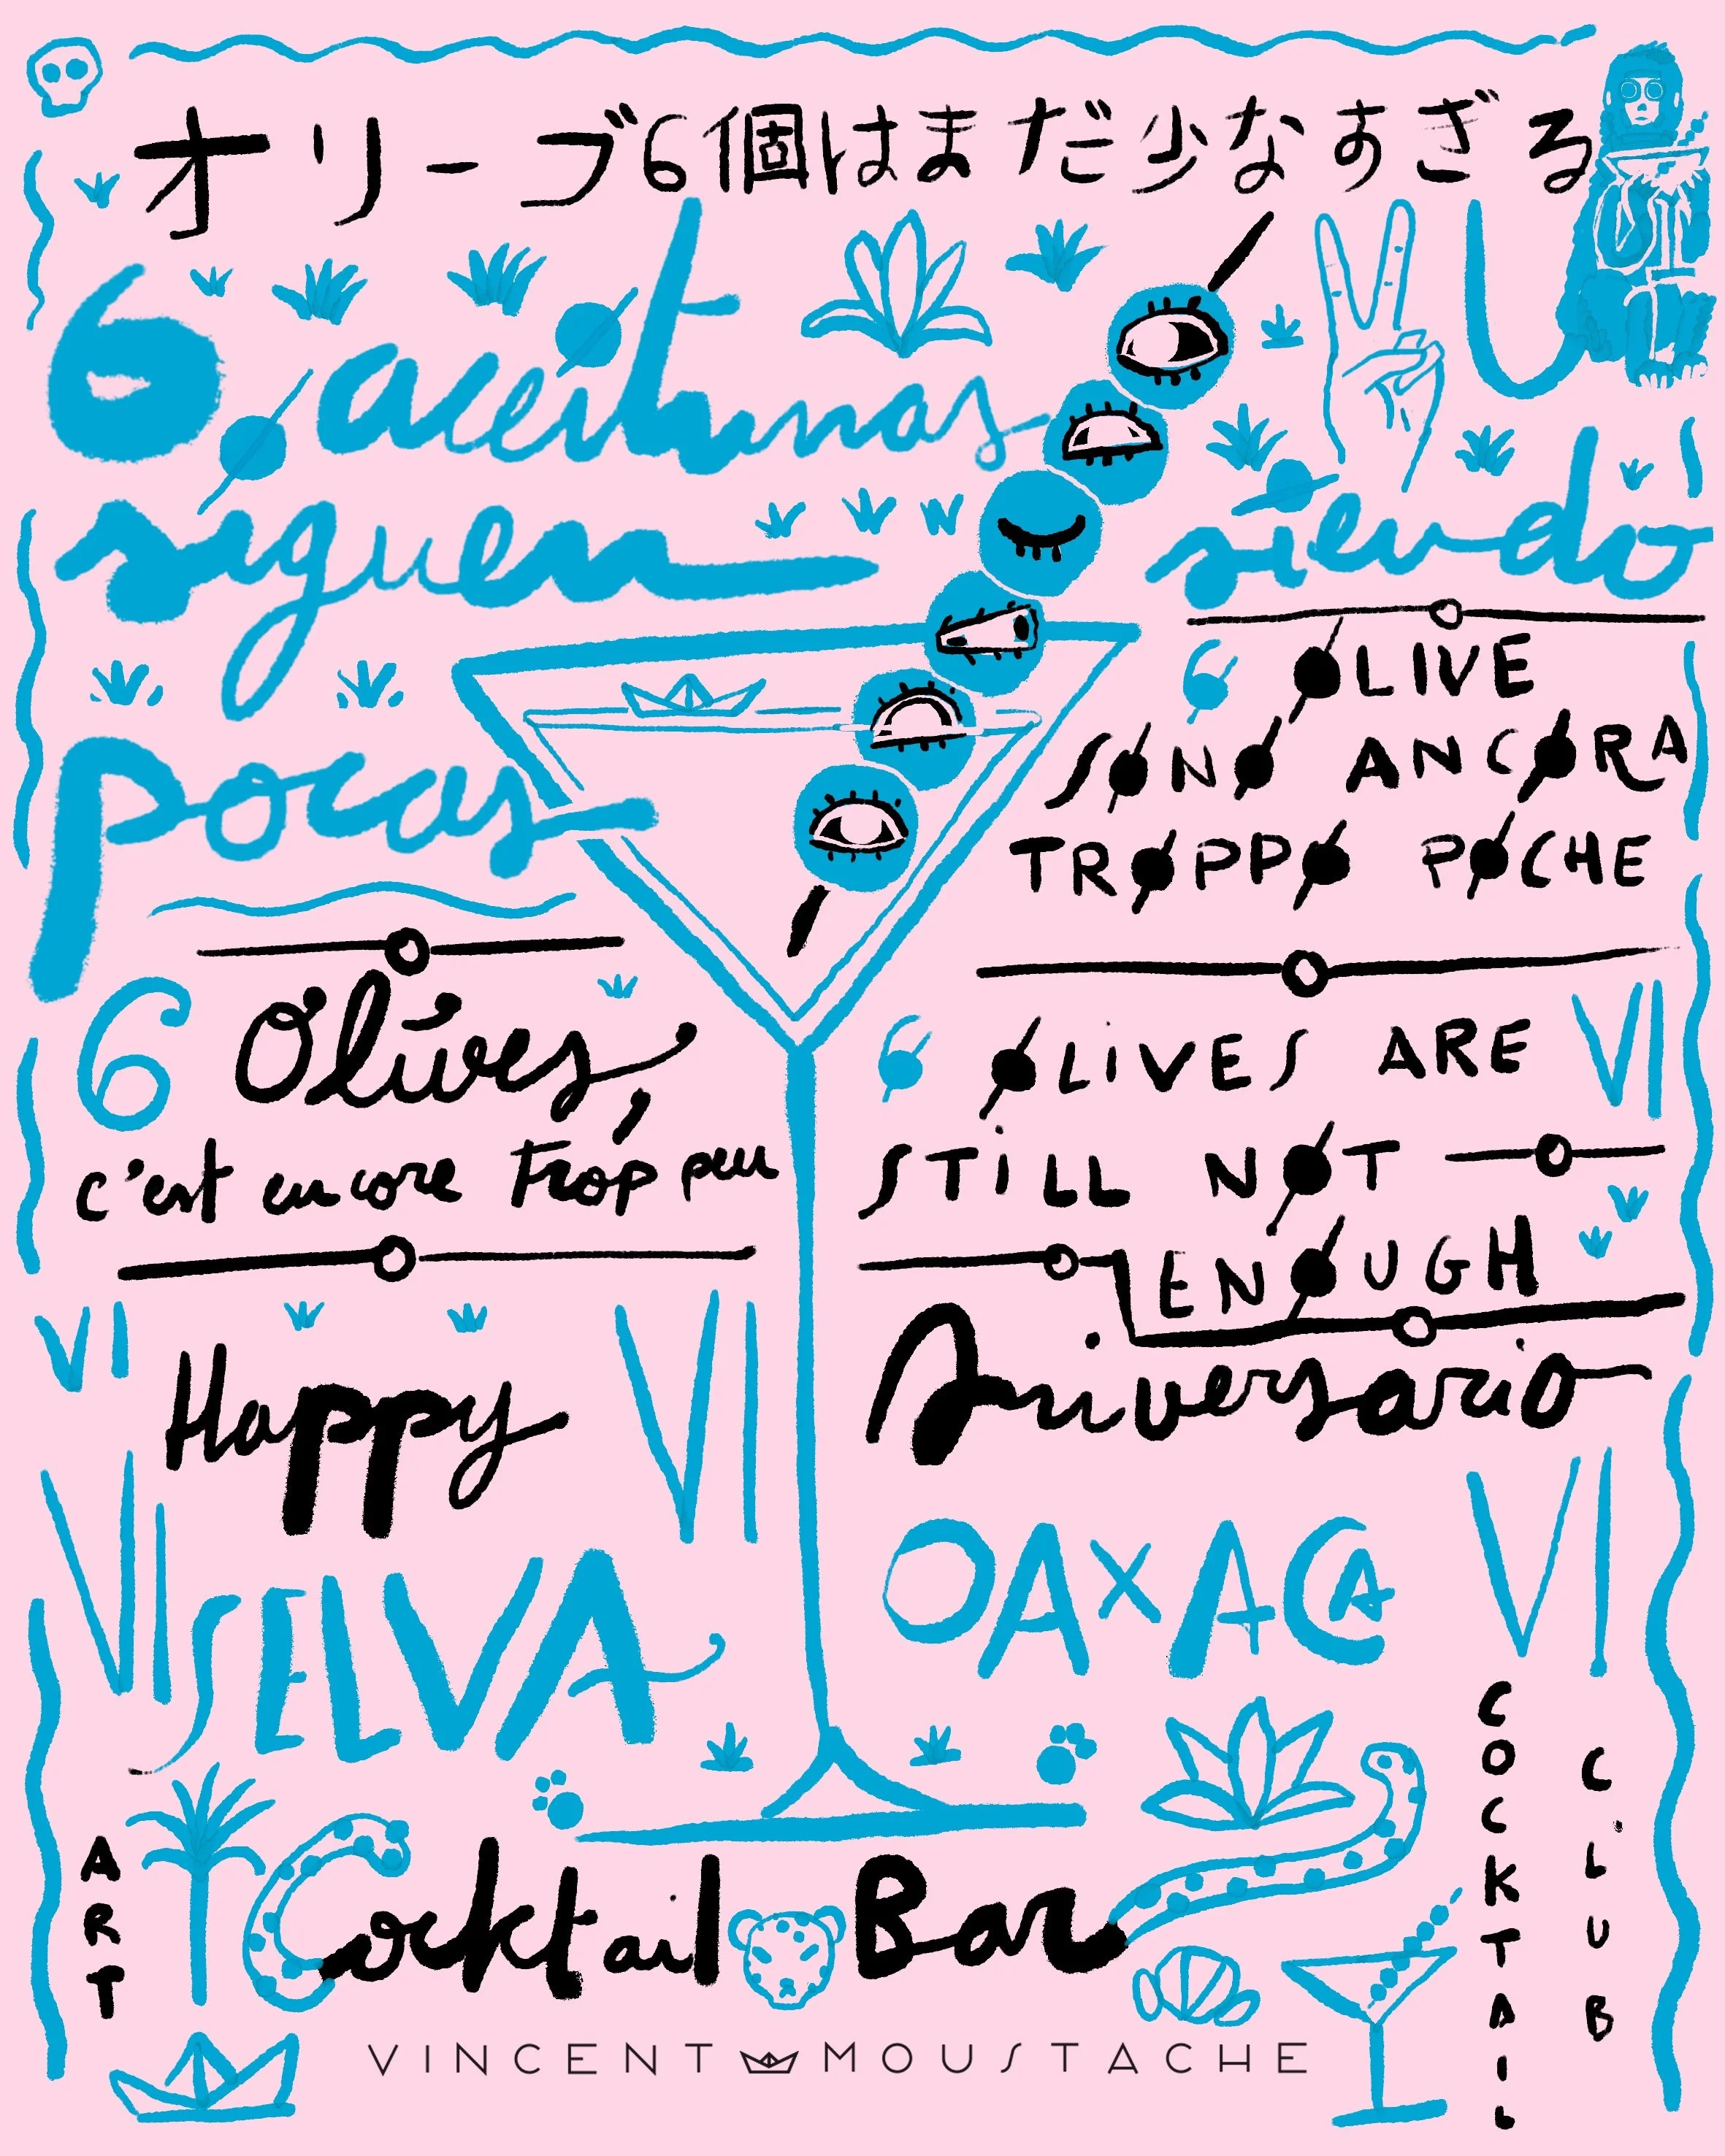 オリーブ6個はまだ少なすぎる
6 aceitunas
siguen siendo
pocas
6 OLIVE
SONO ANCORA
TROPPO POCHE
6 Olives,
c'est encore trop peu
6 OLiVES ARE VI
STiLL NOT
ENOUGH
VI
Happy VI Aniversario
VI SELVA OAXACA VI
ART
Cocktail Bar
COCKTAIL
CLUB
VINCENT MOUSTACHE